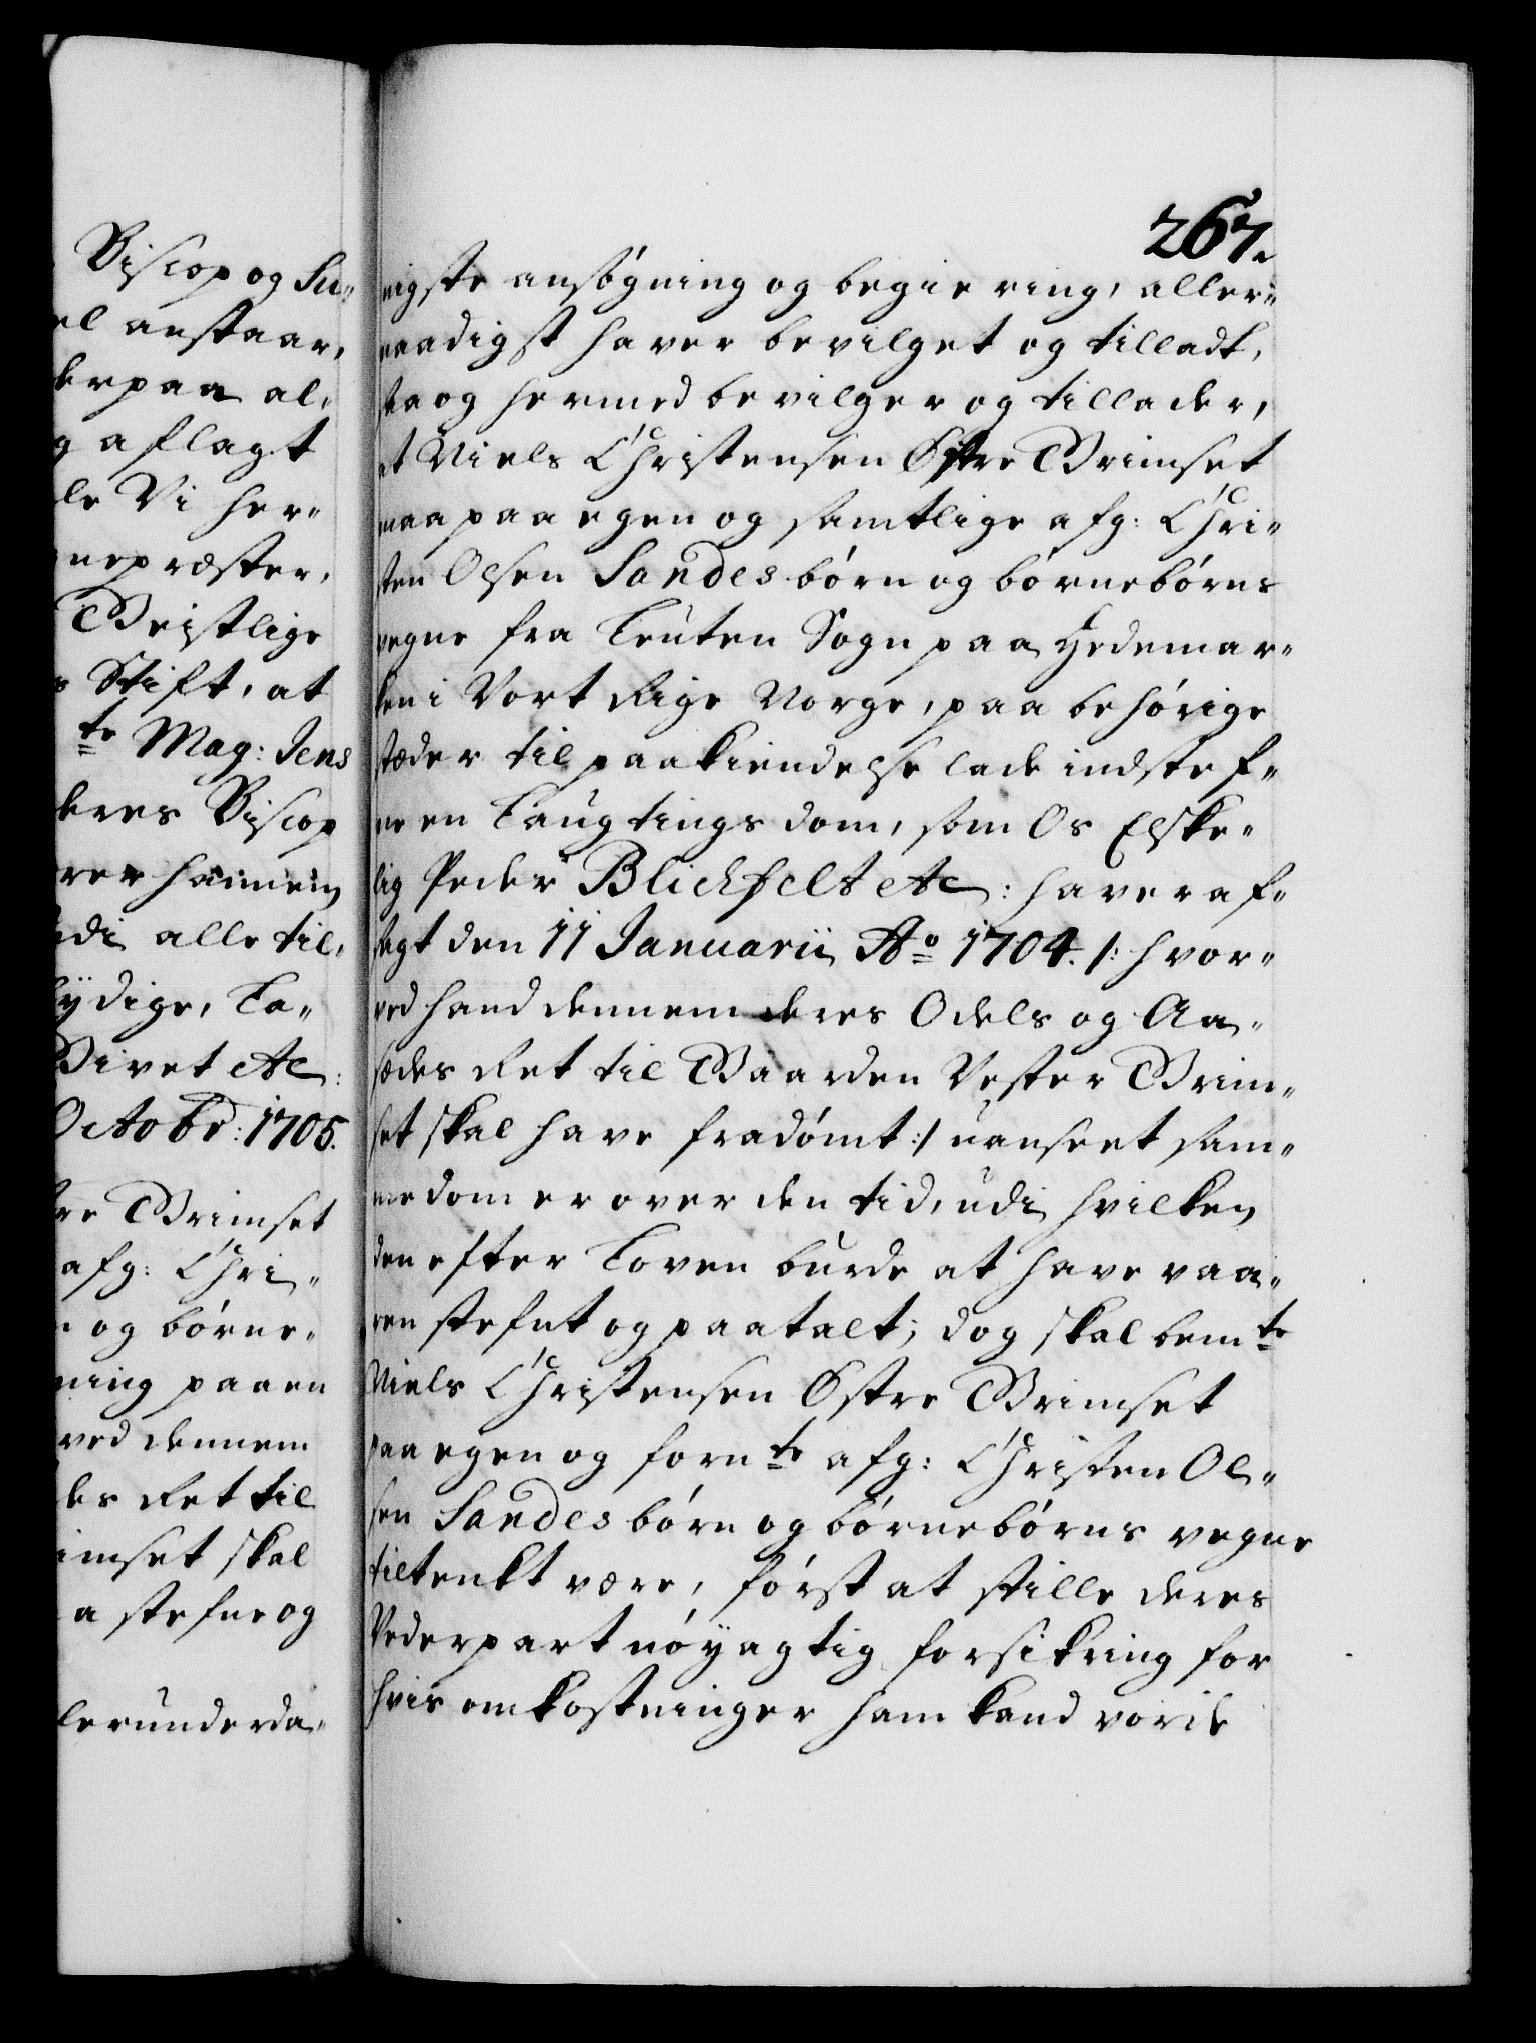 Biscop og Su-
el anstaar,
derpaa al-
g aflagt
le Vi her-
nepræster,
Geistlige
s Stift, at
te Mag: Jens
deres Biscop
rer hannem
udi alle til-
lydige, La-
Givet etc:
Octobr: 1705.
re Grimset
afg: Chri-
og børne-
ning paa en
ved dennem
des Ret til
imset skal
a stefne og
lerunderda-
267.
nigste ansøgning og begiering, aller-
naadigst haver bevilget og tilladt,
saa og hermed bevilger og tillader,
at Niels Christensen Østre Grimset
maa paa egen og samtlige afg: Chri-
sten Olsen Sandes børn og børnebørns
vegne fra Leuten Sogn paa Hedemar-
ken i Vort Rige Norge, paa behørige
stæder til paakiendelse lade indstef-
ne en Laugtings dom, som Os Elske-
lig Peder Blichfelt etc: haver af-
sagt den 11 Januarii Ao 1704. /: hvor-
ved hand dennem deres Odels og Aa-
sædes Ret til Gaarden Vester Grim-
set skal have fradømt :/ uanseet sam-
me dom er over den tid, udi hvilken
den efter Loven burde at have vaa-
ren stefnt og paatalt; dog skal bemte
Niels Christensen Østre Grimset
paa egen og fornte afg: Christen Ol-
sen Sandes børn og børnebørns vegne
tiltenkt være, først at stille deres
Vederpart nøyagtig forsikring for
hvis omkostninger ham kand vorde